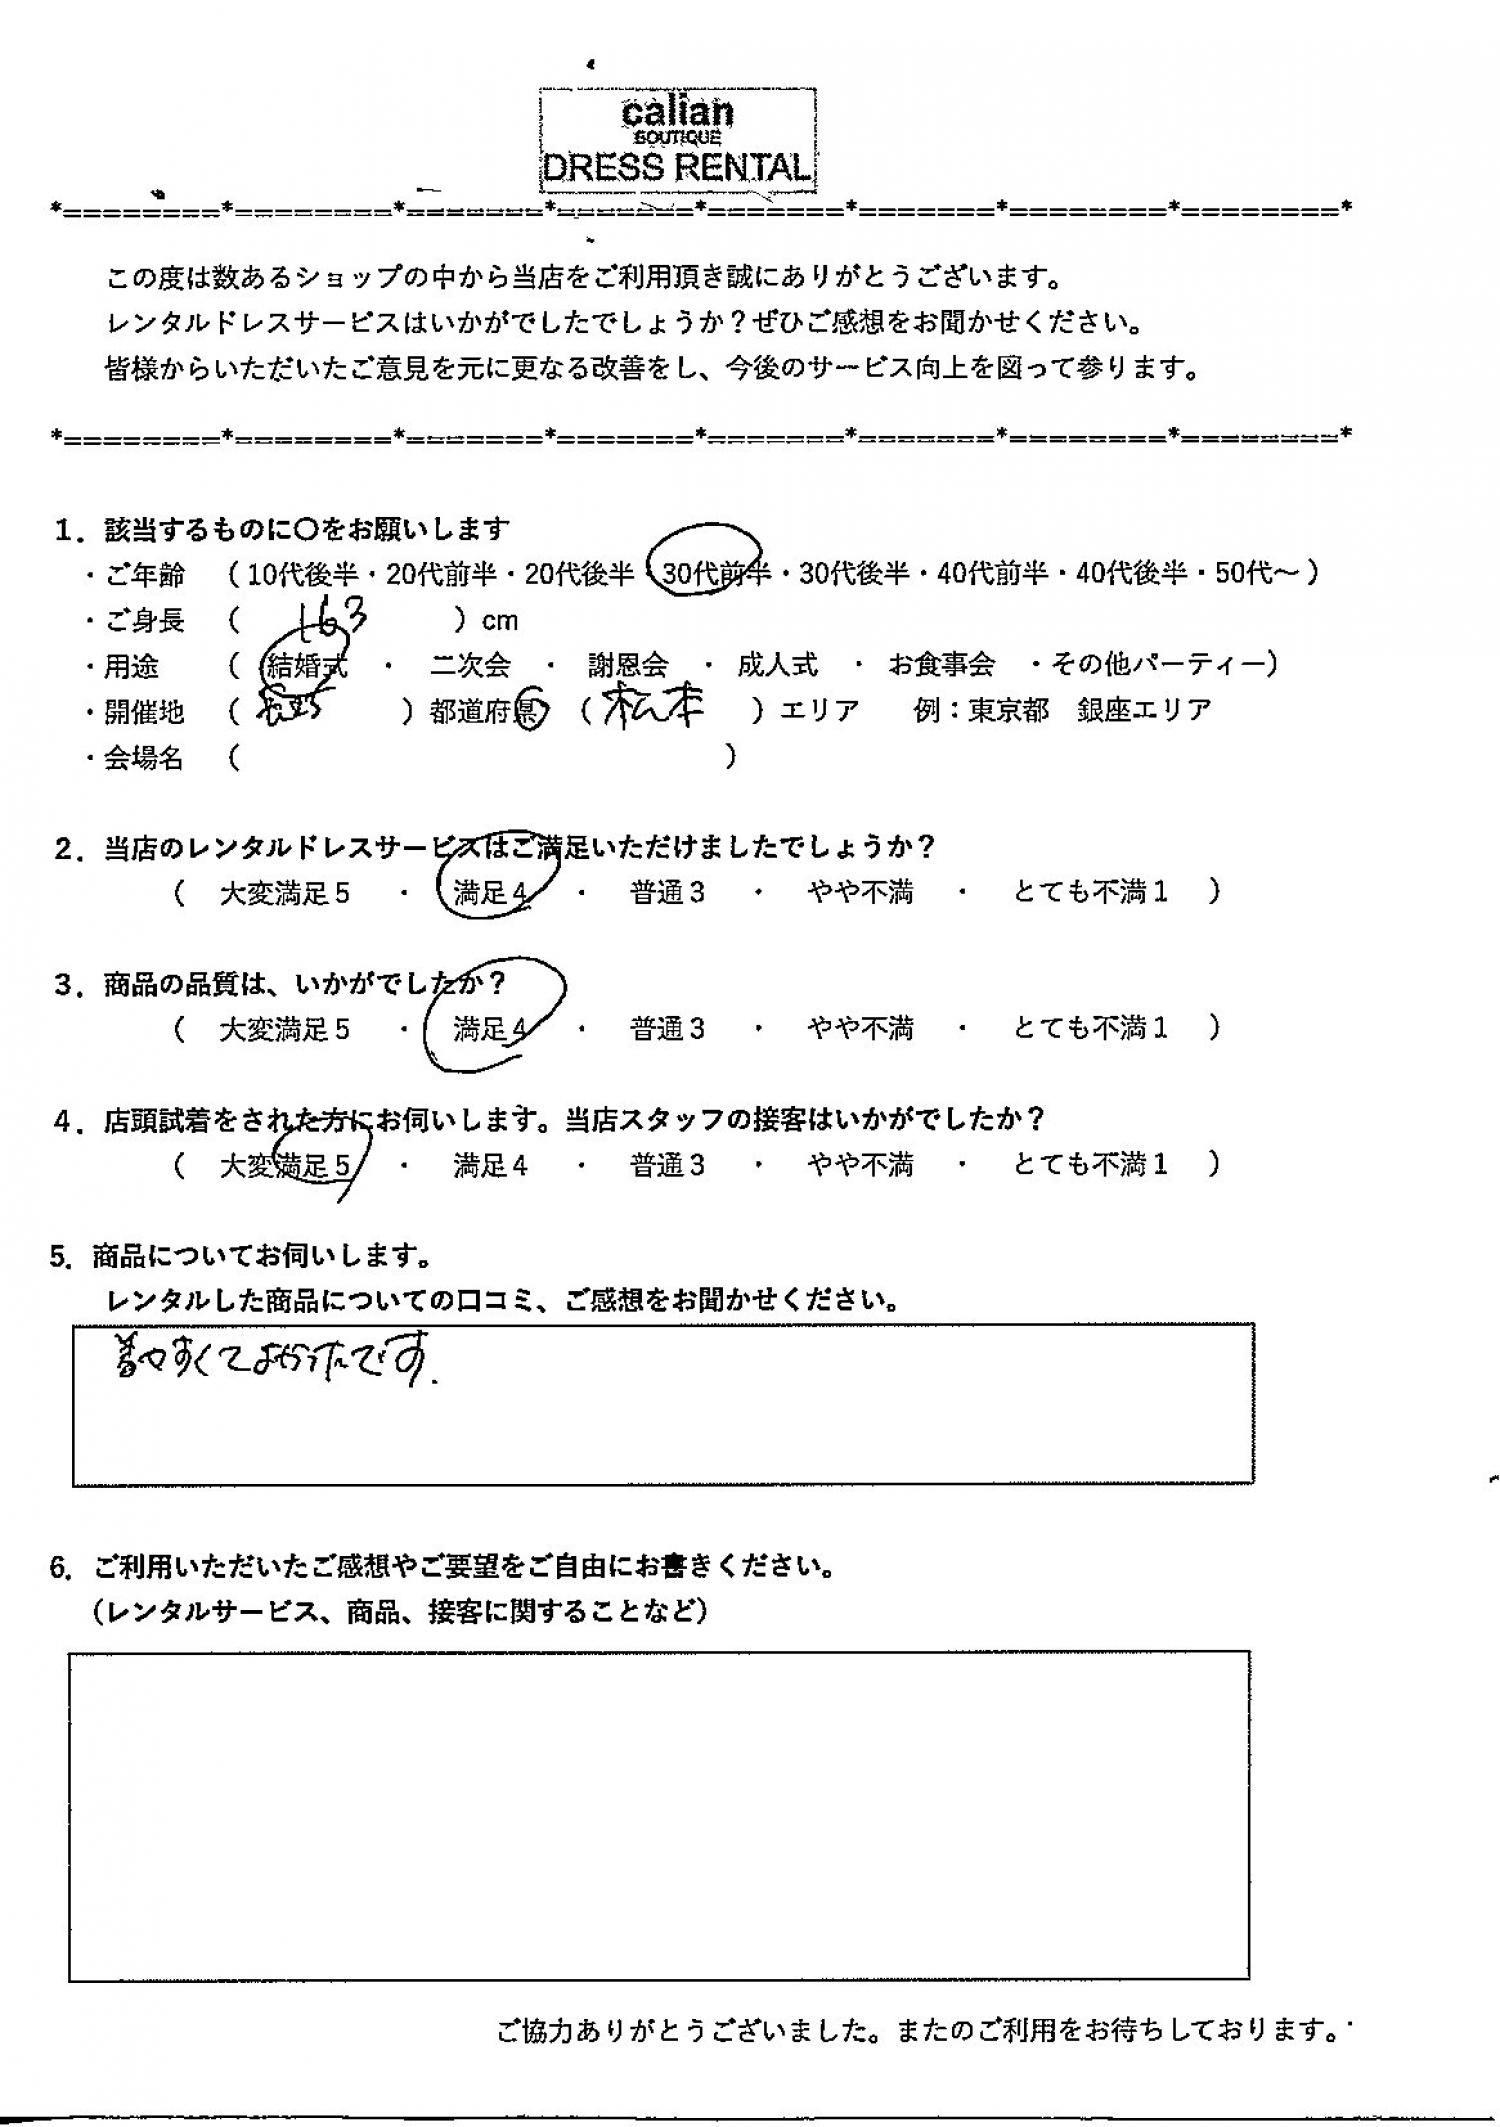 calian
BOUTIQUE
DRESS RENTAL
*========*========*=======*=======*=======*=======*========*========*
この度は数あるショップの中から当店をご利用頂き誠にありがとうございます。
レンタルドレスサービスはいかがでしたでしょうか？ぜひご感想をお聞かせください。
皆様からいただいたご意見を元に更なる改善をし、今後のサービス向上を図って参ります。
*========*========*=======*=======*=======*=======*========*========*
1．該当するものに〇をお願いします
・ご年齢 （ 10代後半・20代前半・20代後半・30代前半・30代後半・40代前半・40代後半・50代～ ）
・ご身長 （ 163 ）cm
・用途 （ 結婚式 ・ 二次会 ・ 謝恩会 ・ 成人式 ・ お食事会 ・その他パーティー）
・開催地 （ 長野 ）都道府県 （ 松本 ）エリア 例：東京都 銀座エリア
・会場名 （ ）
2．当店のレンタルドレスサービスはご満足いただけましたでしょうか？
（ 大変満足５ ・ 満足４ ・ 普通３ ・ やや不満 ・ とても不満１ ）
3．商品の品質は、いかがでしたか？
（ 大変満足５ ・ 満足４ ・ 普通３ ・ やや不満 ・ とても不満１ ）
4．店頭試着をされた方にお伺いします。当店スタッフの接客はいかがでしたか？
（ 大変満足５ ・ 満足４ ・ 普通３ ・ やや不満 ・ とても不満１ ）
5．商品についてお伺いします。
レンタルした商品についての口コミ、ご感想をお聞かせください。
着やすくてよかったです.
6．ご利用いただいたご感想やご要望をご自由にお書きください。
（レンタルサービス、商品、接客に関することなど）
ご協力ありがとうございました。またのご利用をお待ちしております。